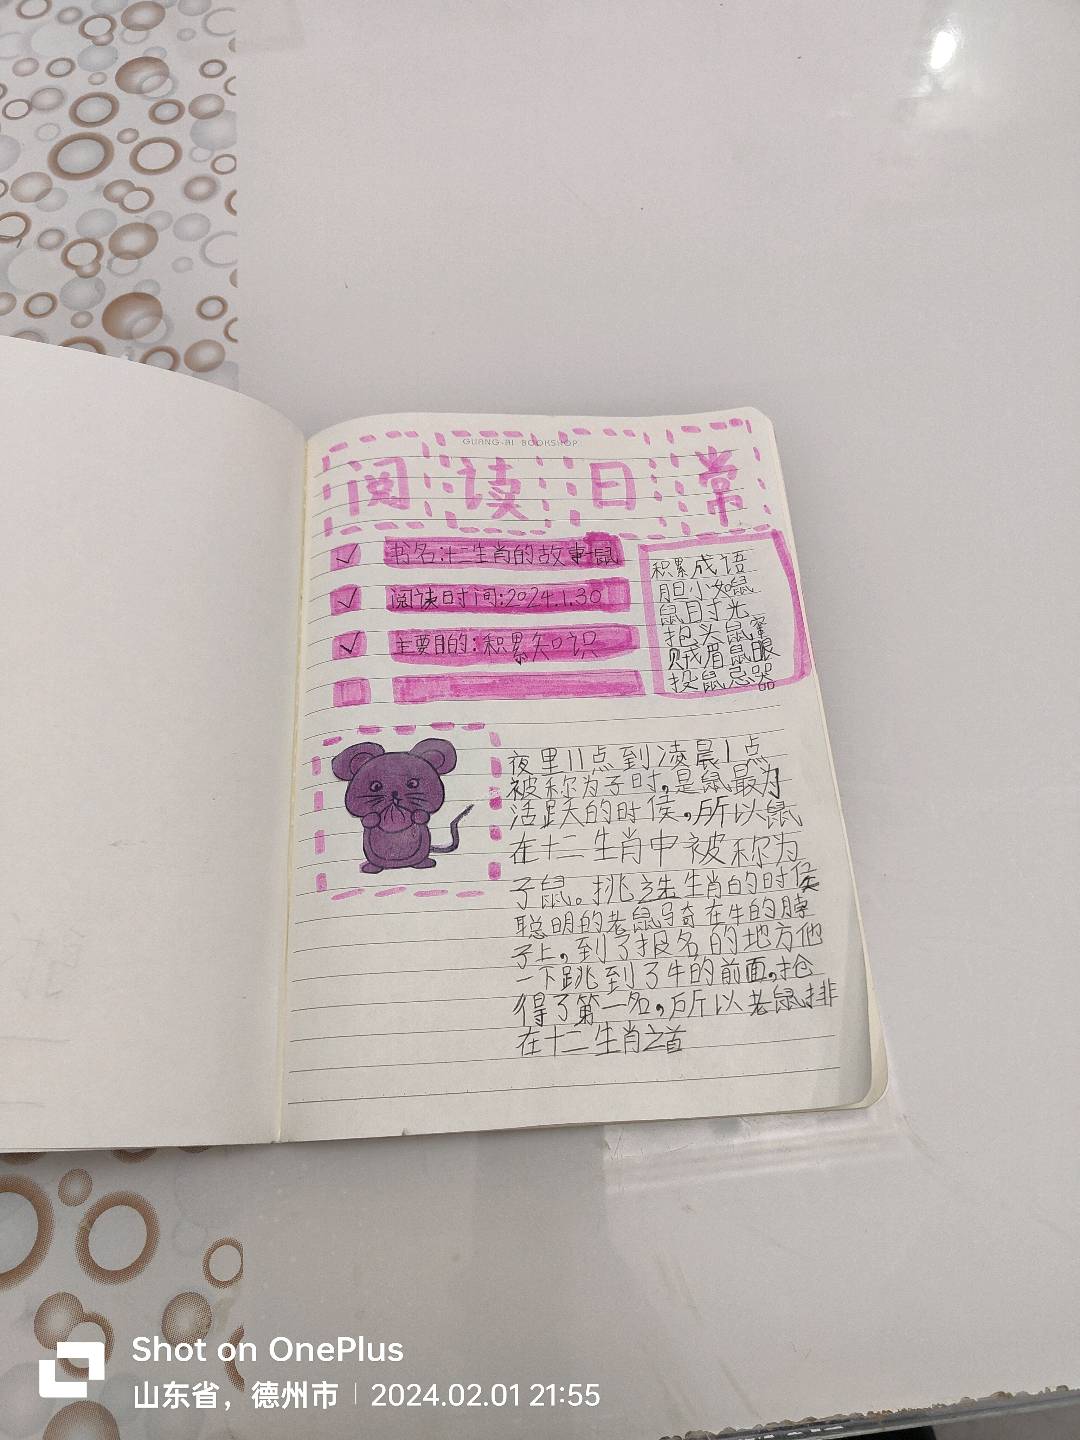 GUANG-AI BOOKSHOP
阅读日常
书名:十二生肖的故事鼠
阅读时间:2024.1.30
主要目的:积累知识
积累成语
胆小如鼠
鼠目寸光
抱头鼠窜
贼眉鼠眼
投鼠忌器
夜里11点到凌晨1点
被称为子时,是鼠最为
活跃的时侯,所以鼠
在十二生肖中被称为
子鼠。挑选生肖的时侯
聪明的老鼠骑在牛的脖
子上,到了报名的地方他
一下跳到了牛的前面,抢
得了第一名,所以老鼠排
在十二生肖之首
Shot on OnePlus
山东省,德州市 | 2024.02.01 21:55